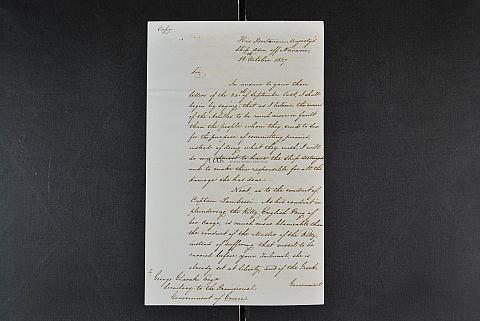 Copy
His Britannic Majesty's
Ship Asia off Navarin
18 October 1827
Sir
In answer to your three
letters of the 20th of September last, I shall
begin by saying, that as I believe the owners
of the to be much more in fault
than the people whom they send to Sea
for the purpose of committing piracies,
instead of doing what they wish, I will
do my utmost to have the ship destroyed
and to make them responsible for all the
damage she has done.
Next, as to the conduct of
Captain . As his conduct in
plundering the Kitty English Brig of
her Cargo, is much more blameable than
the conduct of the Master of the Kitty,
instead of suffering that vessel to be
carried before your Tribunal, she is
already set at liberty, and if the Greek
Government
To
George Glarakis Esqre
Secretary to the Provisional
Government of Greece